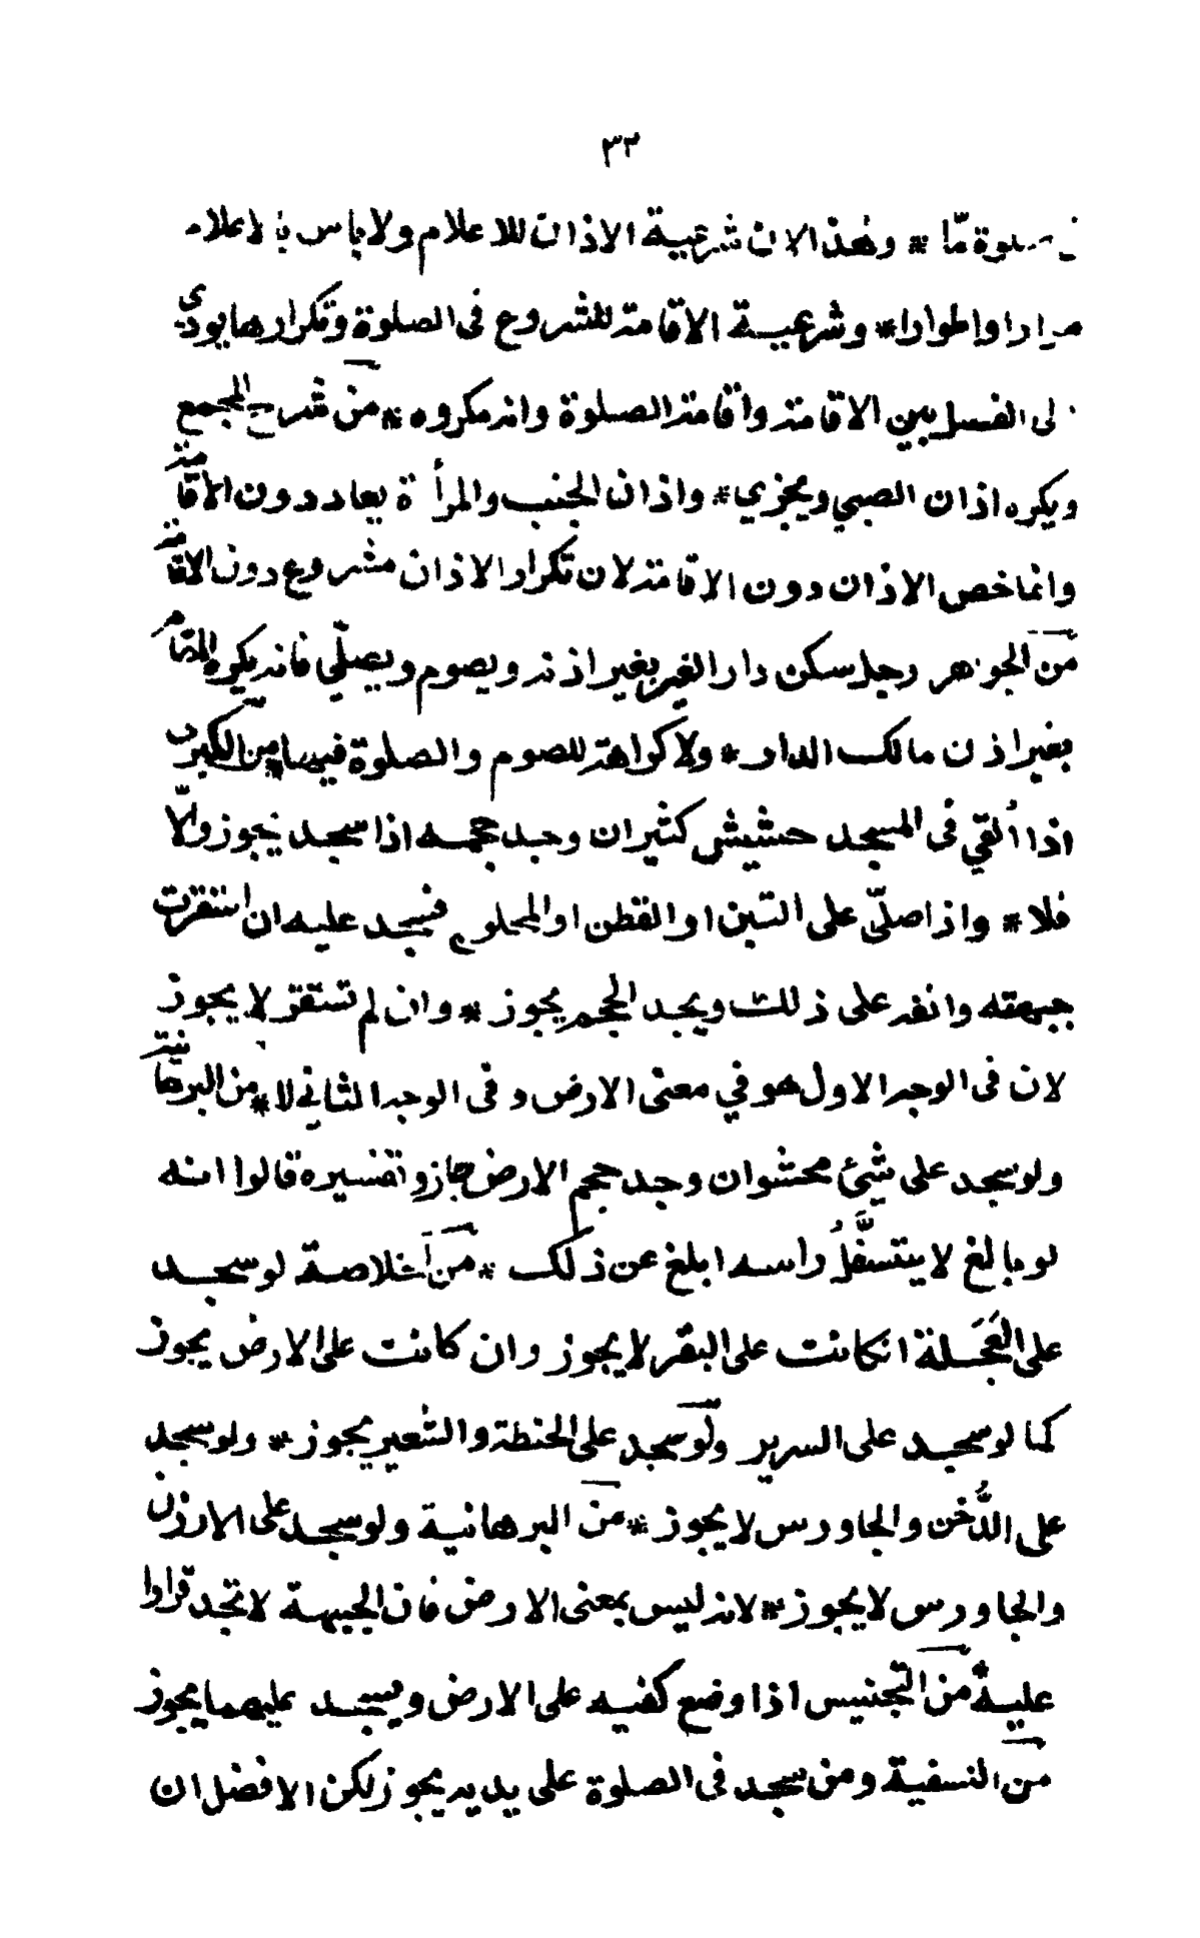 ٣٣
صلوة مّا * وهذا لان شرعية الاذان للاعلام ولا باس بالاعلام
مرارا واطوارا * وشرعية الاقامة للشروع فى الصلوة وتكرارها يودي
الى الفصل بين الاقامة واقامة الصلوة وانه مكروه * من شرح المجمع
ويكره اذان الصبي ويجزي * واذان الجنب والمرأة يعاد دون الاقامة
وانما خص الاذان دون الاقامة لان تكرار الاذان مشروع دون الاقامة
من الجواهر رجل سكن دار الغير بغير اذنه ويصوم ويصلّي فانه يكره المقام
بغير اذن مالك الدار * ولا كراهة للصوم والصلوة فيها * من الكبرى
اذا اُلقي فى المسجد حشيش كثير ان وجد حجمه اذا سجد يجوز والّا
فلا * واذا صلّى على التبن او القطن او المحلوج فسجد عليه ان استقرت
جبهته وانفه على ذلك ويجد الحجم يجوز * وان لم تستقر لا يجوز
لان فى الوجه الاول هو في معنى الارض و فى الوجه الثاني لا * من البرهانية
ولو سجد على شئ محشو ان وجد حجم الارض جاز وتفسيره قالوا انه
لو بالغ لا يتسفَّلُ راسه ابلغ من ذلك * من الخلاصة لو سجد
على العَجَلة ان كانت على البقر لا يجوز وان كانت على الارض يجوز
كما لو سجد على السرير ولو سجد على الحنطة والشعير يجوز * ولو سجد
على الدُّخن والجاورس لا يجوز * من البرهانية ولو سجد على الارزن
والجاورس لا يجوز * لانه ليس بمعنى الارض فان الجبهة لا تجد قرارا
عليه * من التجنيس اذا وضع كفيه على الارض ويسجد عليهما يجوز
من النسفية ومن سجد فى الصلوة على يديه يجوز لكن الافضل ان